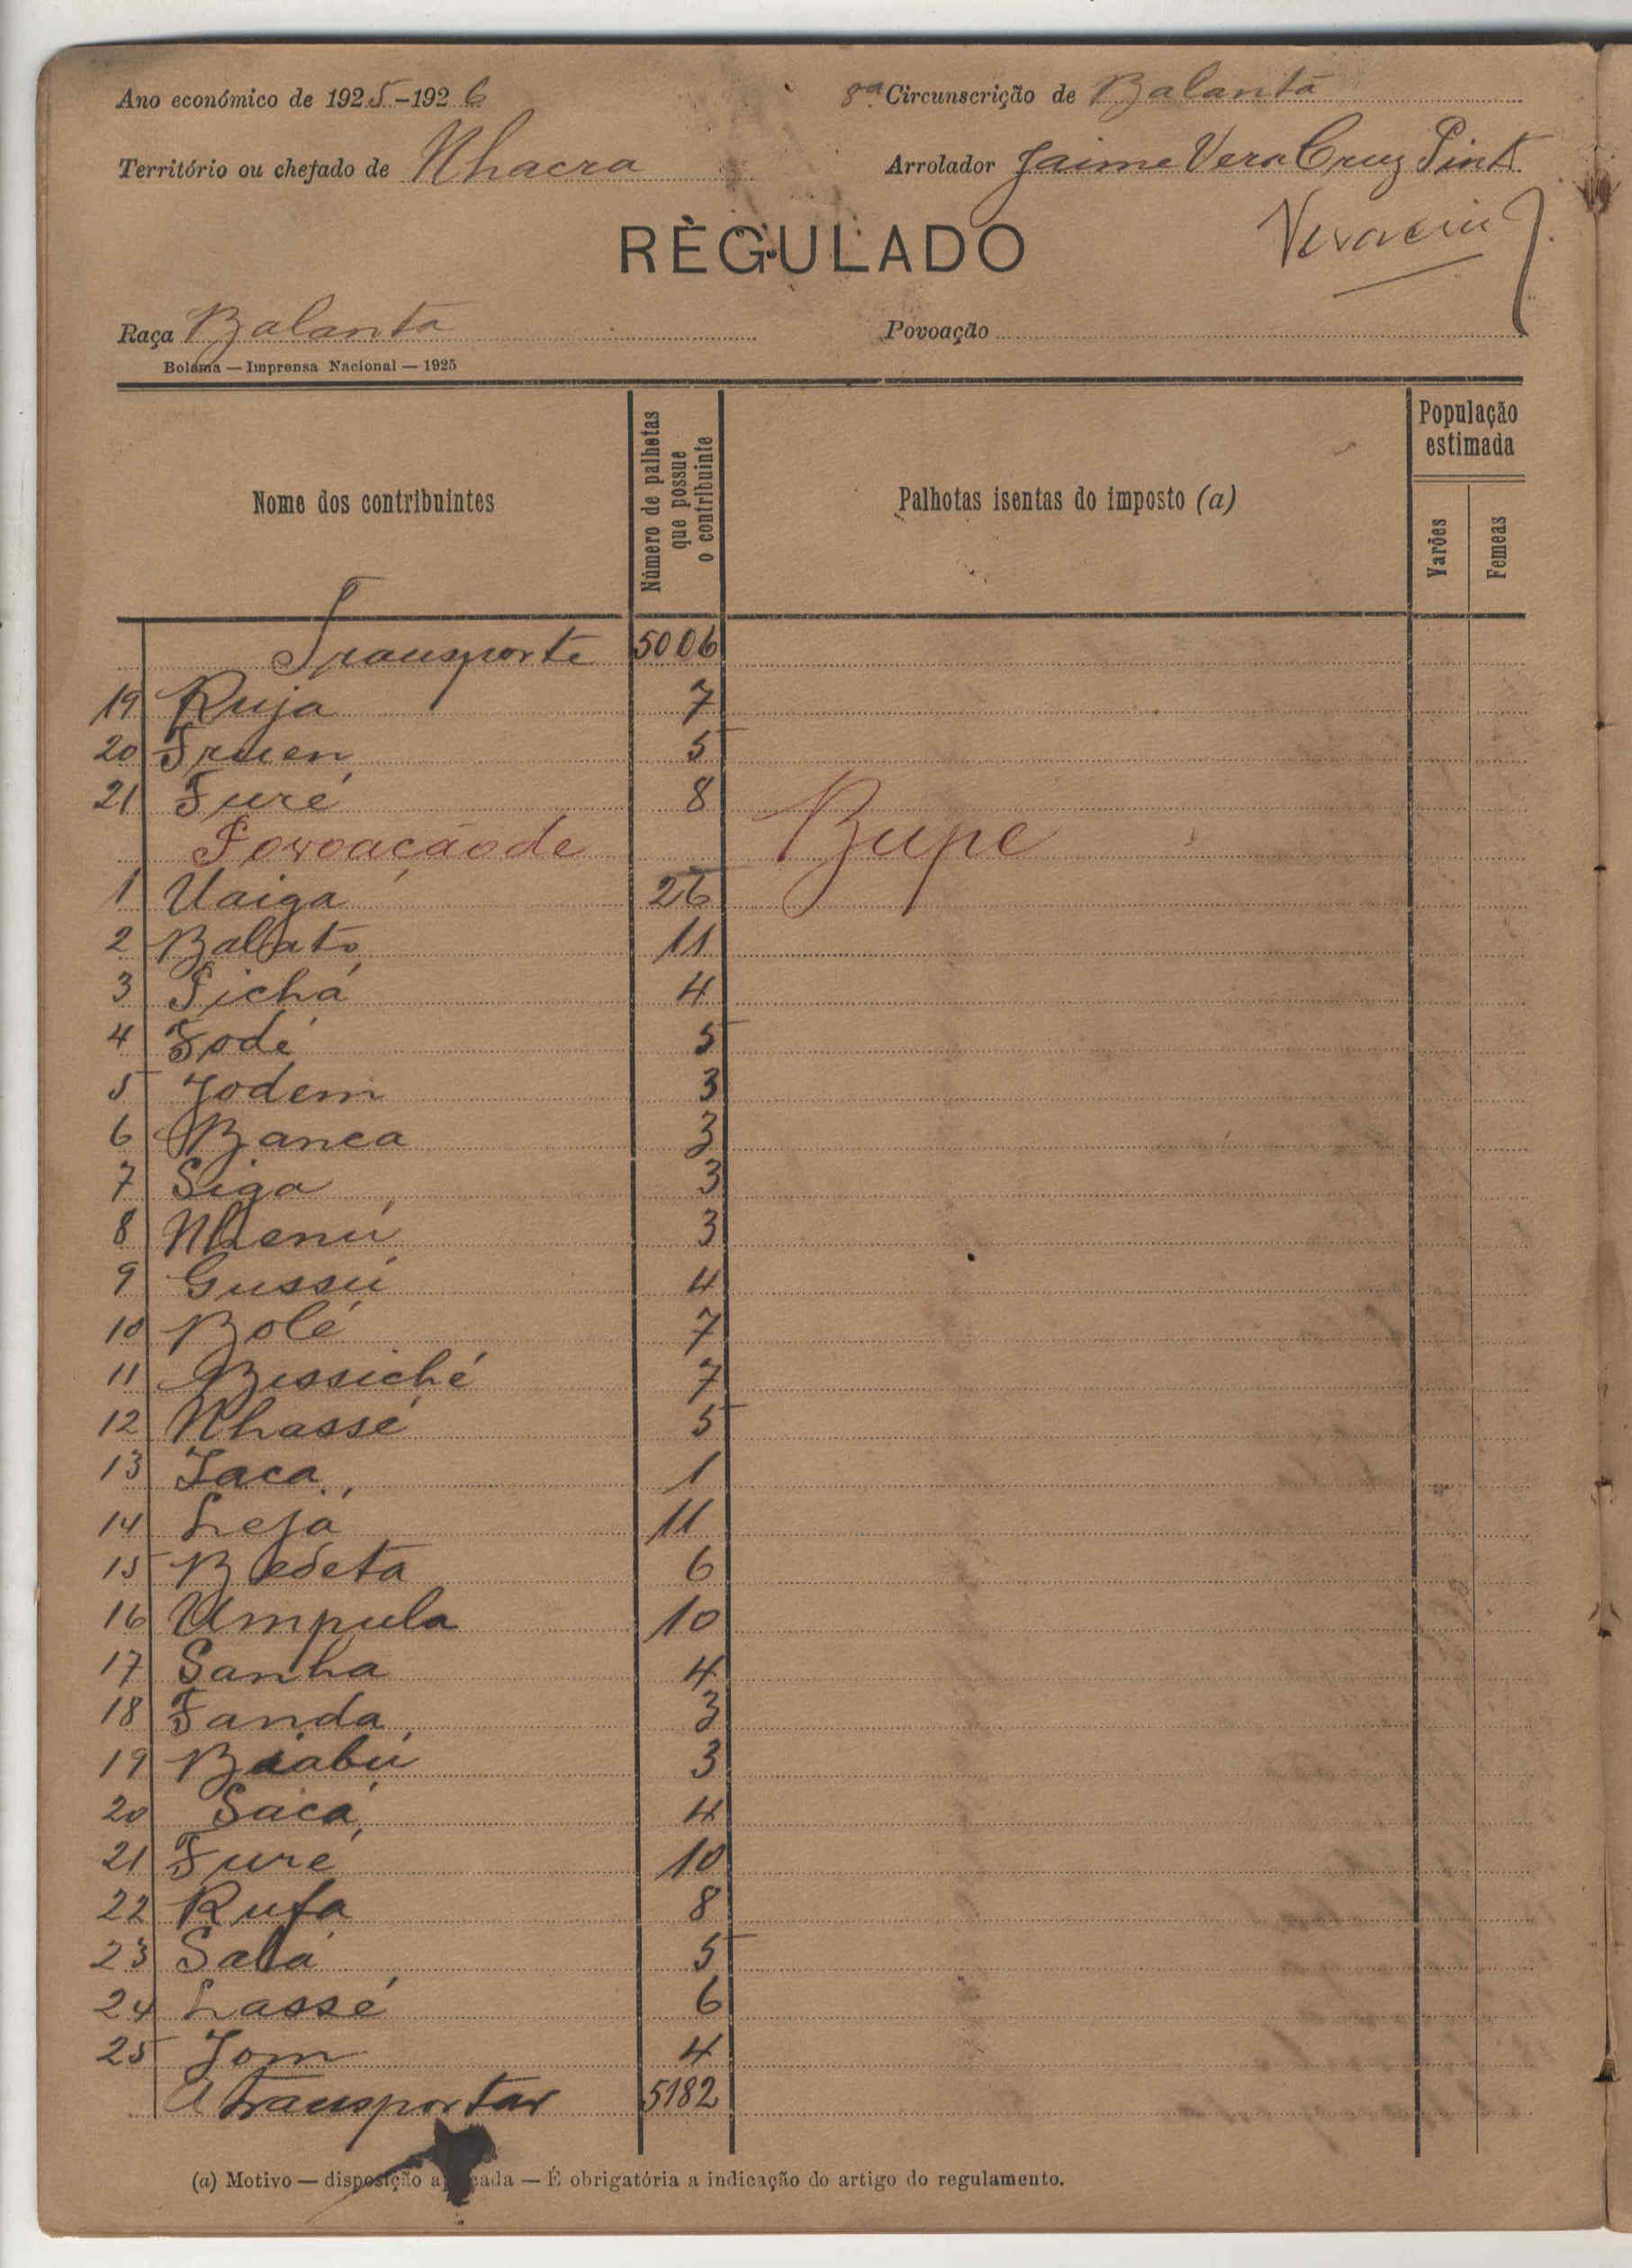 Ano económico de 1925-1926
8ª Circunscrição de Balanta
Território ou chefado de Nhacra
Arrolador Jaime Vera Cruz Pint
RÈGULADO
Raça Balanta
Povoação
Bolama — Imprensa Nacional — 1925
Nome dos contribuintes
Número de palhotas que possue o contribuinte
Palhotas isentas do imposto (a)
População estimada
Varões
Femeas
Transporte 5006
19 Ruja 7
20 5
21 Furé 8
Povoação de Bupe
1 Uaiga 26
2 11
3 Pichá 4
4 Fodé 5
5 Jodem 3
6 Banca 3
7 Siga 3
8 Nhenú 3
9 Gussú 4
10 Bolé 7
11 Bissiché 7
12 Nhassé 5
13 Jaca 1
14 Lejá 11
15 Bedeta 6
16 Umpula 10
17 Sanha 4
18 Fanda 3
19 Biabú 3
20 Sacá 4
21 Furé 10
22 Rufa 8
23 5
24 Lassé 6
25 Jom 4
A transportar 5182
(a) Motivo — disposição aplicada — É obrigatória a indicação do artigo do regulamento.